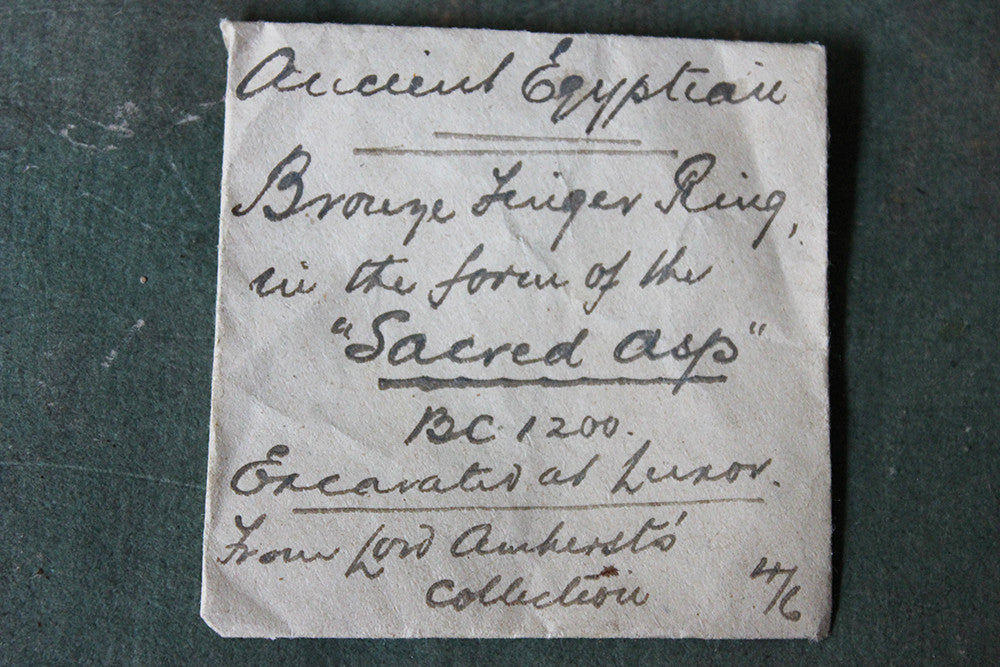 Ancient Egyptian
Bronze Finger Ring,
in the form of the
"Sacred Asp"
BC. 1200.
Excavated at Luxor.
From Lord Amherst's
Collection 4/6